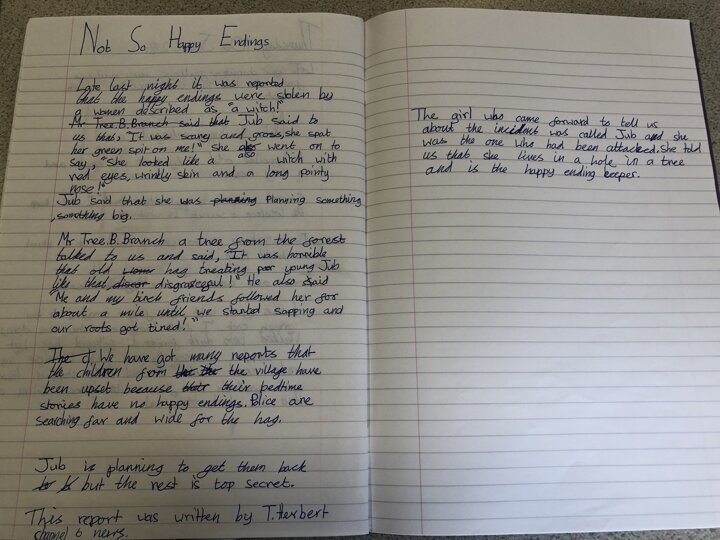 Not So Happy Endings
Late last night it was reported
that the happy endings were stolen by
a women described as "a witch!"
Mr Tree.B.Branch said that Jub said to
us that, "It was scary and gross, she spat
her green spit on me!" She also went on to
say, "She looked like a also witch with
red eyes, wrinkly skin and a long pointy
nose!"
Jub said that she was planning Planning something
, something big.
Mr Tree.B.Branch a tree from the forest
talked to us and said, "It was horrible
that old hag treating poor young Jub
like that, disgraceful!" He also said
"Me and my birch friends followed her for
about a mile until we started sapping and
our roots got tired!"
The We have got many reports that
the children from the the village have
been upset because their their bedtime
stories have no happy endings. Police are
searching far and wide for the hag.
Jub is planning to get them back
but the rest is top secret.
This report was written by T.Herbert
channel 6 news.
The girl who came forward to tell us
about the incident was called Jub and she
was the one who had been attacked. She told
us that she lives in a hole in a tree
and is the happy ending keeper.